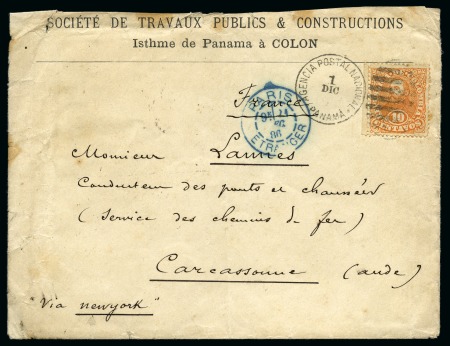 SOCIÉTÉ DE TRAVAUX PUBLICS & CONSTRUCTIONS
Isthme de Panama à COLON
AGENCIA POSTAL NACIONAL
1
DIC
PANAMA
France
PARIS
ETRANGER
10
CENTAVOS
Monsieur Lannes
Conducteur des ponts et chaussées
(Service des chemins de fer)
Carcassonne (aude)
"Via newyork"